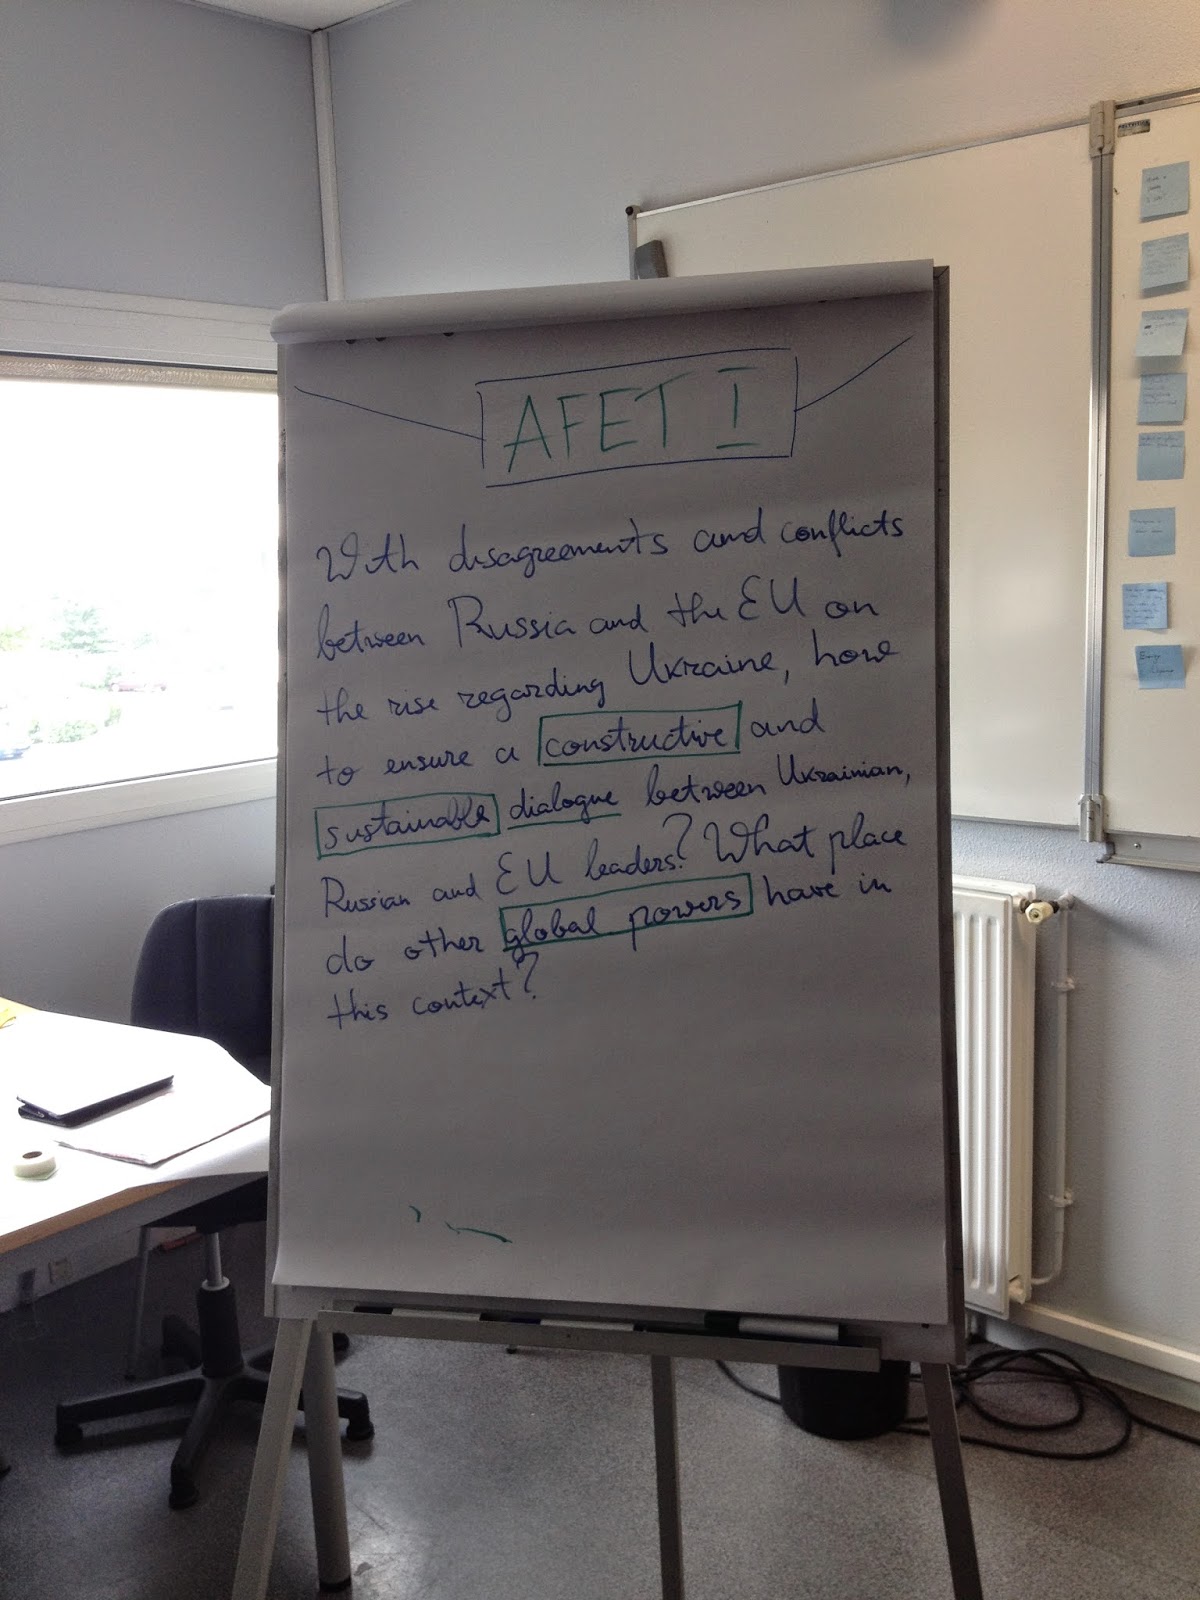 AFET I
With disagreements and conflicts
between Russia and the EU on
the rise regarding Ukraine, how
to ensure a constructive and
sustainable dialogue between Ukrainian,
Russian and EU leaders? What place
do other global powers have in
this context?